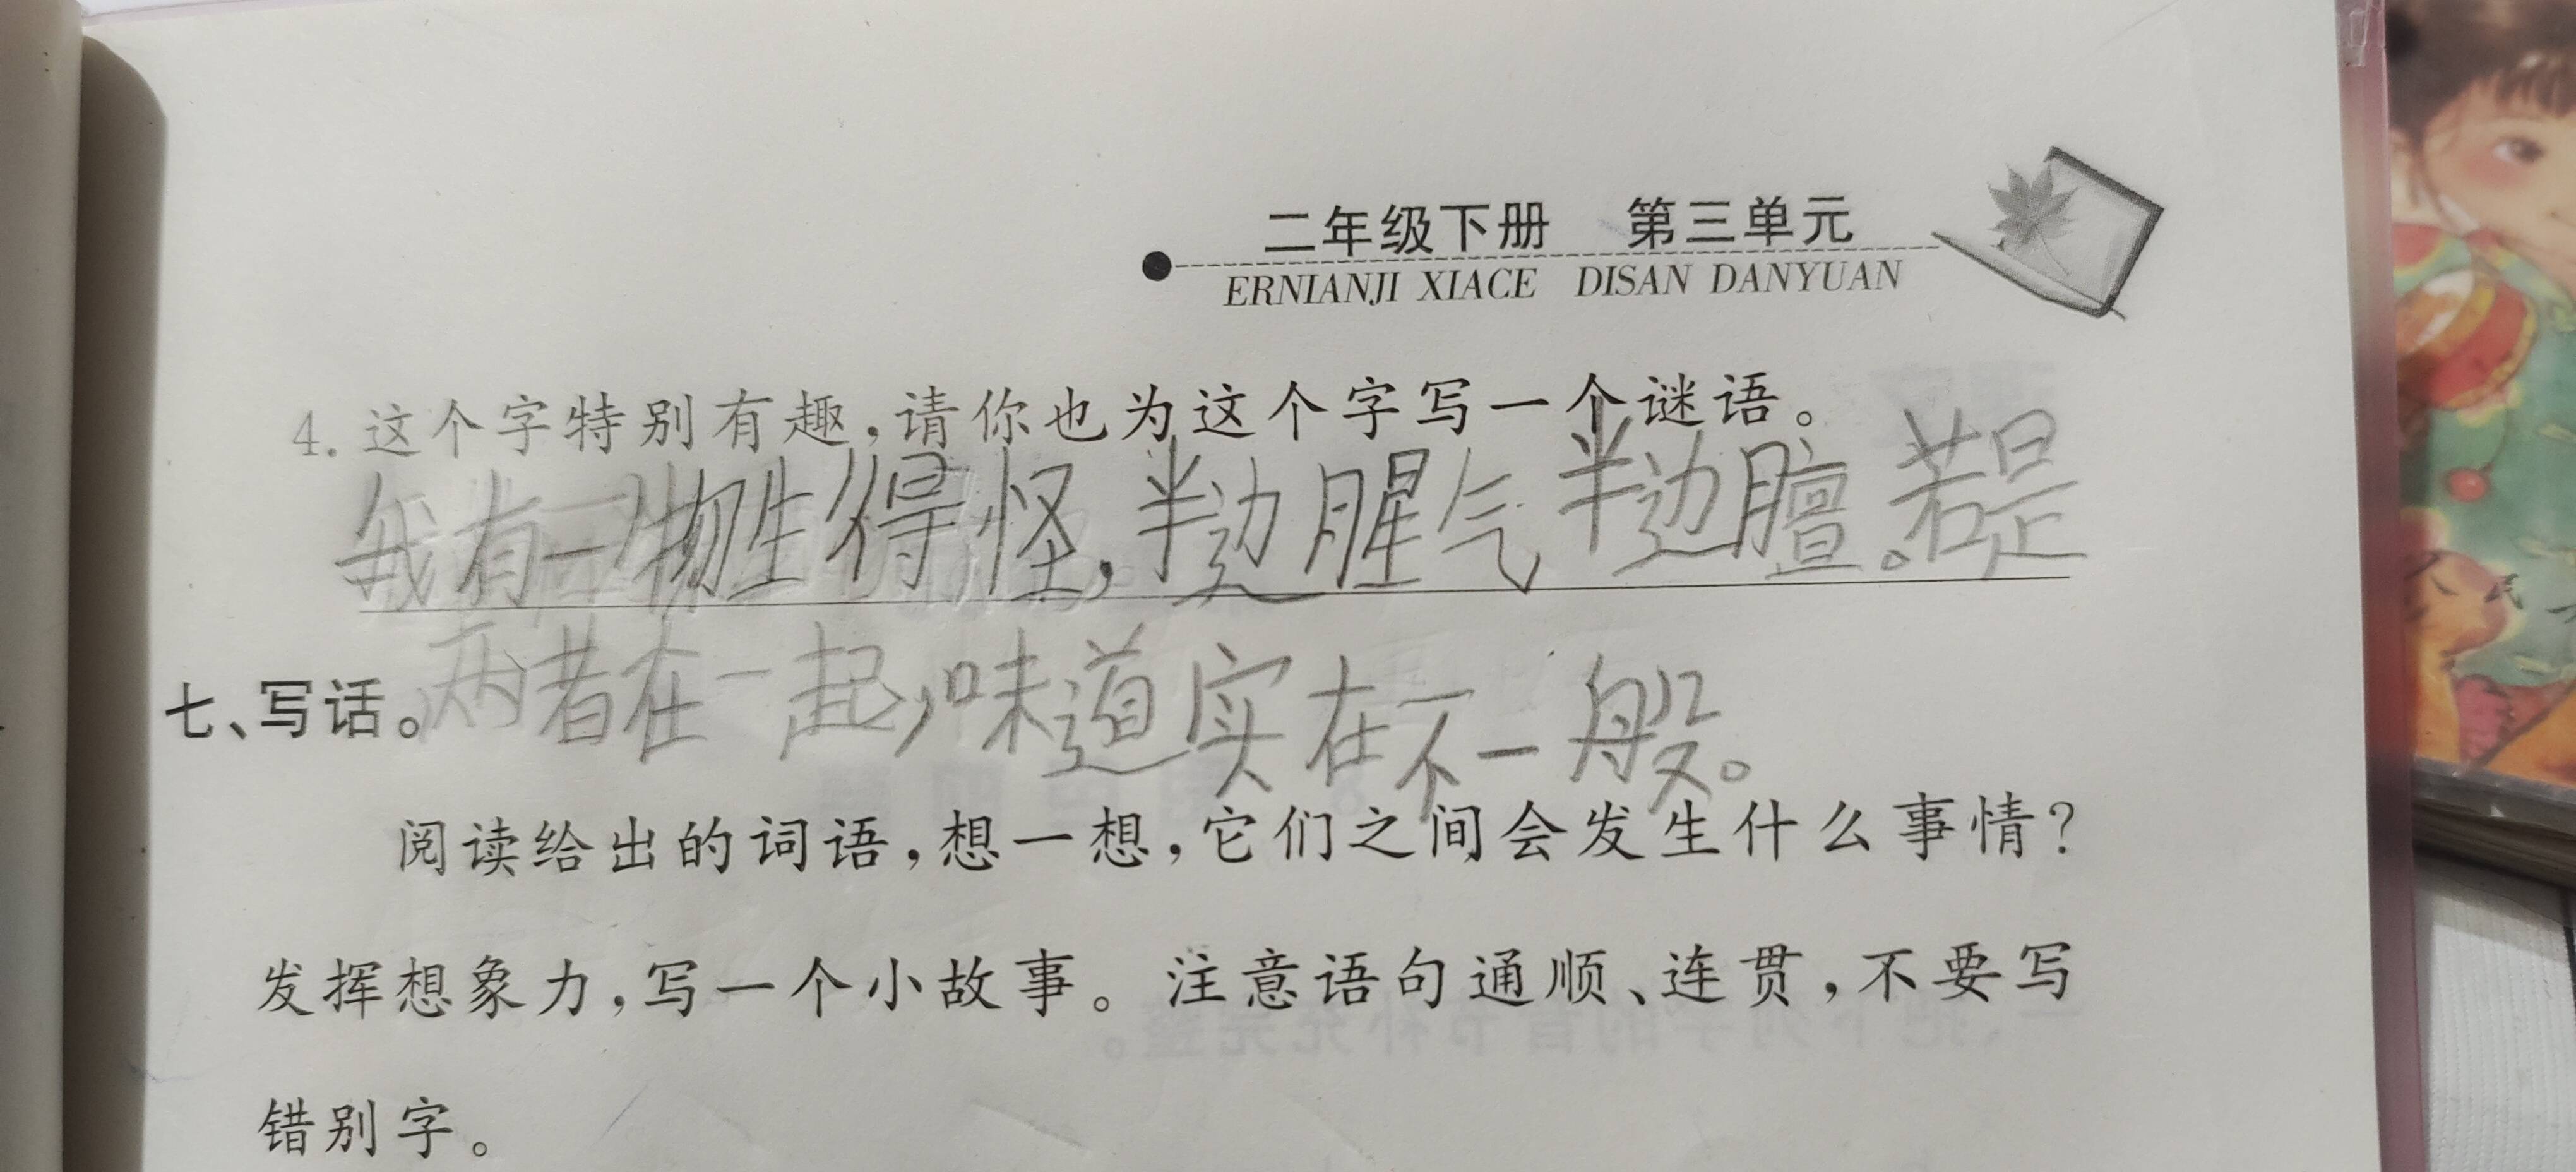 二年级下册 第三单元
ERNIANJI XIACE DISAN DANYUAN
4.这个字特别有趣,请你也为这个字写一个谜语。
我有一物生得怪,半边腥气半边膻。若是
七、写话。两者在一起,味道实在不一般。
阅读给出的词语,想一想,它们之间会发生什么事情?
发挥想象力,写一个小故事。注意语句通顺、连贯,不要写
错别字。